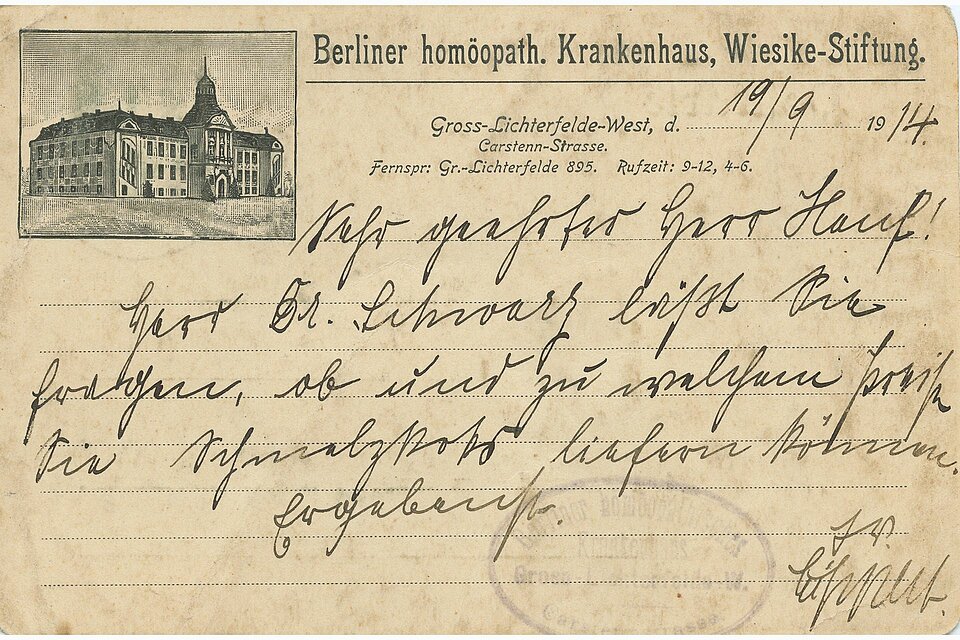 Berliner homöopath. Krankenhaus, Wiesike-Stiftung.
Gross-Lichterfelde-West, d. 19/9 1914.
Carstenn-Strasse.
Fernspr: Gr.-Lichterfelde 895. Rufzeit: 9-12, 4-6.
Sehr geehrter Herr Hauf!
Herr Dr. Schwarz läßt Sie
fragen, ob und zu welchem Preise
Sie Schmelzkoks liefern können.
Ergebenst.
Gross